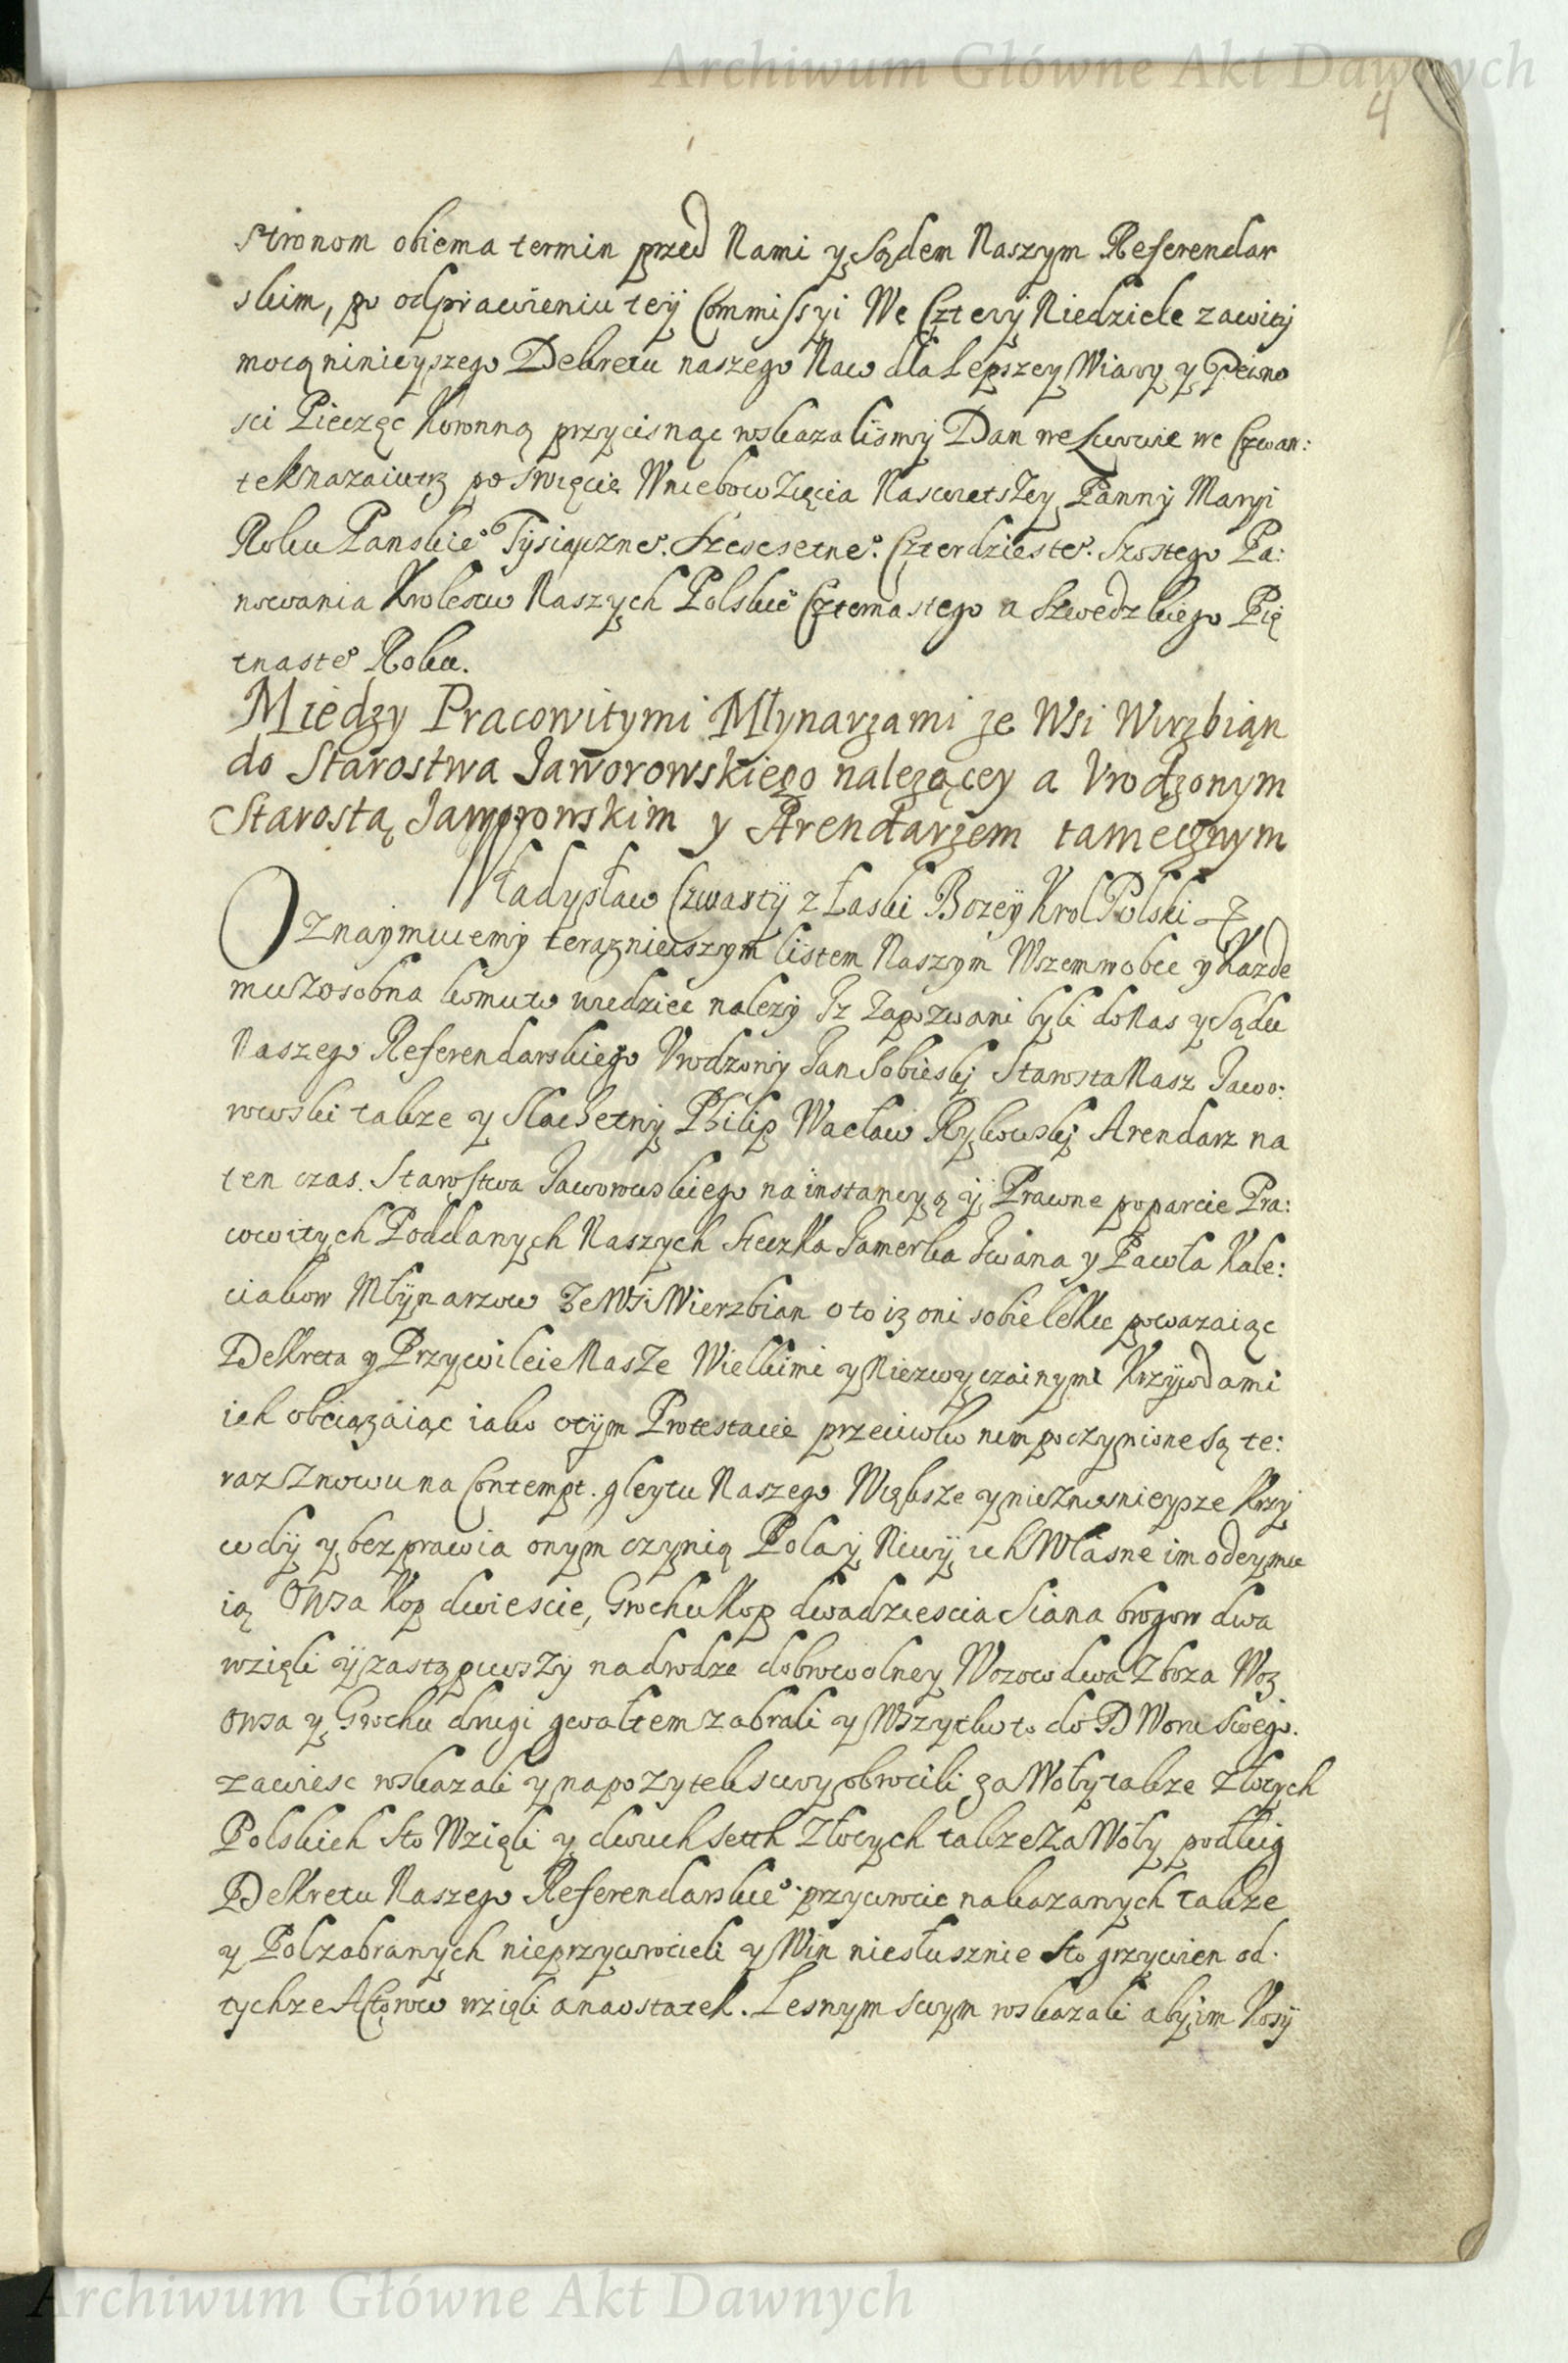 Archiwum Główne Akt Dawnych
4
stronom obiema termin przed Nami y Sądem Naszym Referendar
skim, po odprawieniu teÿ Commissyi We Czterÿ Niedziele zawitÿ
mocą ninieyszego Dekretu naszego Naco dla Lepszey Wiary y Pewno
sci Pieczęc Koronną przycisnąc wskazalismÿ Dan we Lwowie we Czwar:
tek nazaiutrz po swięcie Wniebowzięcia Naswietszey Pannÿ Maryi
Roku Panskieº Tysiączneº. Szescsetneº. Czterdziesteº. Szostego Pa:
nowania Krolestw Naszych Polskieº Czternastego a Szwedzkiego Pię
tnasteº Roku.
Miedzy Pracowitymi Młynarzami ze Wsi Wirzbiąn
do Starostwa Jaworowskiego nalezącey a Vrodzonym
Starostą Jaworowskim y Arendarzem tamecznym
Władysław Czwartÿ z Łaski Bozeÿ Krol Polski &
Oznaymuiemÿ terazniejszym listem Naszym Wszem wobec y Kazde
mu zosobna komu to wiedziec nalezÿ Iz Zapozwani byli do Nas y Sądu
Naszego Referendarskiego Vrodzonÿ Jan Sobieskj Starosta Nasz Jawo:
rowski takze y Slachetnÿ Philip Wacław Rykowskj Arendarz na
ten czas. Starostwa Jaworowskiego na instancyą ÿ Prawne poparcie Pra:
cowitych Poddanych Naszych Steczka Jamerka Iwana y Pawła Kale:
ciakow Młÿnarzow Ze Wsi Wierzbian o to iz oni sobie lekce powazaiąc
Dekreta y Przywileie Nasze Wielkimi y Niezwyczainymi Krzÿwdami
ich obciązaiąc iako otÿm Protestacie przeciwko nim poczynione są te:
raz znowu na Contempt. gleytu Naszego Większe y nieznosnieysze Krzÿ
wdÿ y bezprawia onym czynią Pola ÿ Niwÿ ich Własne im odeymu
ią Owsa Kop dwiescie, Grochu Kop dwadziescia Siana brogow dwa
wzięli ÿ zastąpiwszÿ na drodze dobrowolney Wozow dwa Zboza Woz
Owsa y Grochu drugi gwałtem zabrali y Wszytko to do DWoru swego.
zawiesc wskazali y na pozytek swoy obrocili, za Wołÿ takze Złotych
Polskich Sto Wzięli y dwuch setth Złotych takze Za Wołÿ podług
Dekretu Naszego Referendarskieº przywrocic nakazanych takze
y Pol zabranych nieprzywrocieli y Win niesłusznie Sto grzywien od
tychze Actorow wzięli a na ostatek. Lesnym swym wskazali abÿ im Kosÿ
Archiwum Główne Akt Dawnych